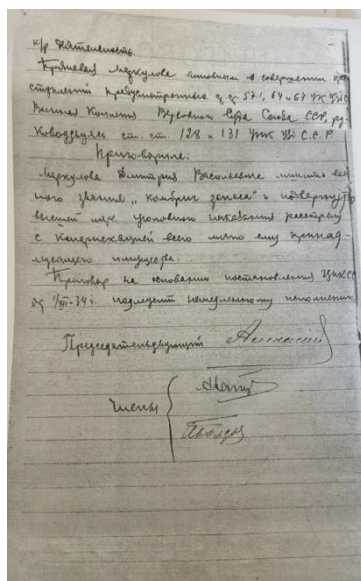 к/р деятельность.
Признавая Меркулова виновным в совершении пре-
ступлений предусмотренных ст. ст. 57-1, 64 и 67 УК Уз ССР
Военная Коллегия Верховного Суда Союза ССР, ру-
ководствуясь ст. ст. 128 и 131 УПК Уз С.С.Р.
Приговорила:
Меркулова Дмитрия Васильевича лишить воен-
ного звания "комбриг запаса" и подвергнуть
высшей мере уголовного наказания расстрелу
с конфискацией всего лично ему принад-
лежащего имущества.
Приговор на основании постановления ЦИК СССР
от 1/XII-34 г. подлежит немедленному исполнению
Председательствующий
Члены